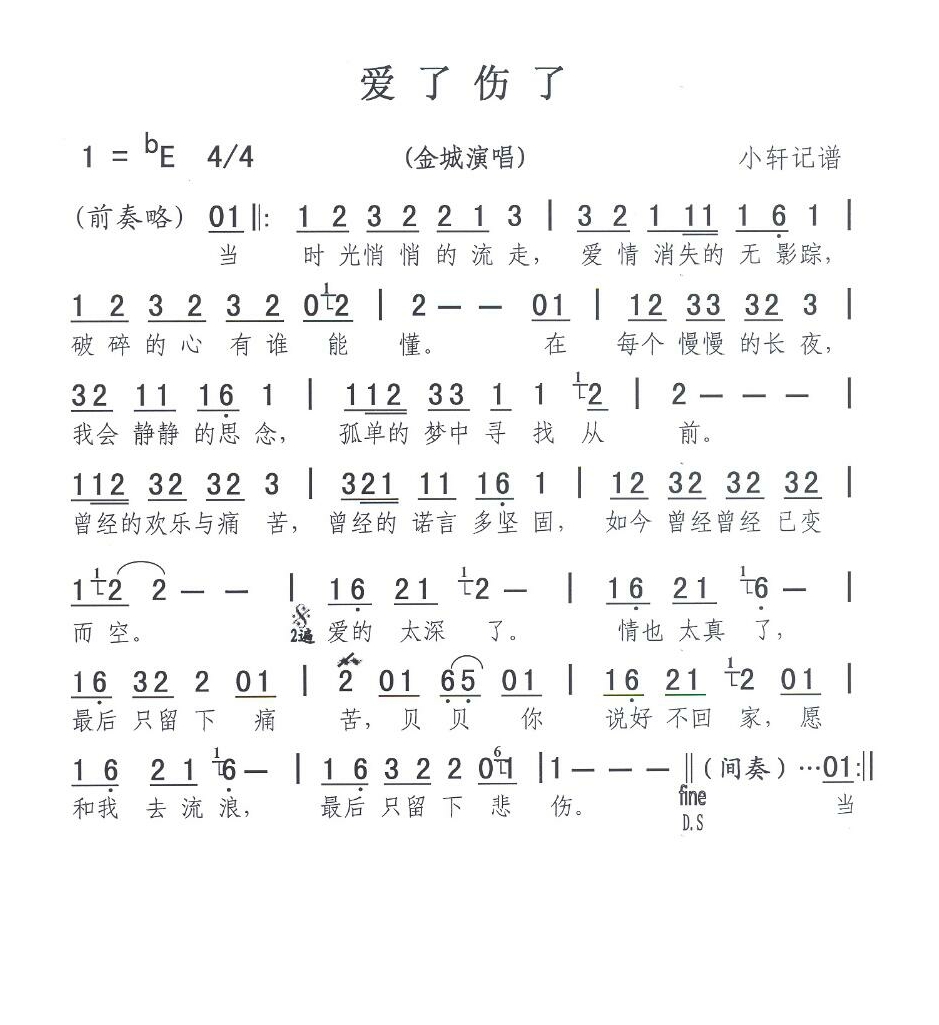 爱了伤了
1 = bE 4/4 (金城演唱) 小轩记谱
(前奏略) 01 ‖: 1 2 3 2 2 1 3 | 3 2 1 11 1 6 1 |
当 时光悄悄的流走, 爱情消失的无影踪,
1 2 3 2 3 2 0 1 2 | 2 — — 01 | 12 33 32 3 |
破碎的心有谁能懂。 在 每个慢慢的长夜,
32 11 16 1 | 112 33 1 1 1 2 | 2 — — — |
我会静静的思念, 孤单的梦中寻找从前。
112 32 32 3 | 321 11 16 1 | 12 32 32 32 |
曾经的欢乐与痛苦, 曾经的诺言多坚固, 如今曾经曾经已变
1 1 2 2 — — | 16 21 1 2 — | 16 21 1 6 — |
而空。 2遍 爱的太深了。 情也太真了,
16 32 2 01 | 2 01 65 01 | 16 21 1 2 01 |
最后只留下痛 苦, 贝贝你 说好不回家, 愿
1 6 2 1 1 6 — | 1 6 3 2 2 0 6 1 | 1 — — — ‖ (间奏) ··· 01 :‖
和我去流浪, 最后只留下悲伤。 fine 当
D.S